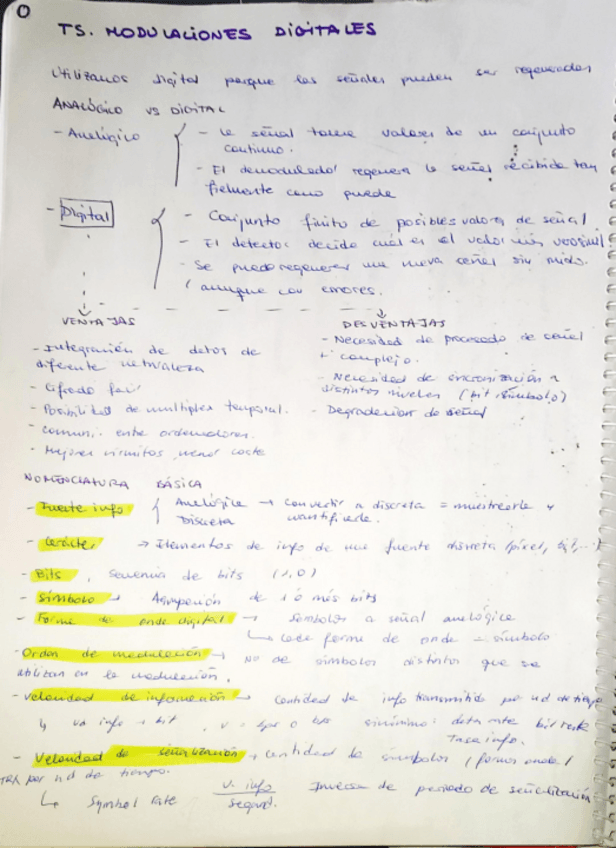 0
T5. MODULACIONES DIGITALES
Utilizamos digital porque las señales pueden ser regeneradas
ANALÓGICO VS DIGITAL
- Analógico
- la señal toma valores de un conjunto
continuo.
- El demodulador regenera la señal recibida tan
fielmente como puede
- Digital
- Conjunto finito de posibles valores de señal
- El detector decide cual es el valor más verosímil
- Se puede regenerar una nueva señal sin ruido.
(aunque con errores.
VENTAJAS
- Integración de datos de
diferente naturaleza
- Cifrado fácil
- Posibilidad de multiplex temporal.
- comuni. entre ordenadores.
- Mejores circuitos, menor coste
DESVENTAJAS
- Necesidad de procesado de señal
+ complejo.
- Necesidad de sincronización a
distintos niveles (bit símbolo)
- Degradacion de señal
NOMENCLATURA BÁSICA
- Fuente info
Analógica → convertir a discreta = muestrearla y
cuantificarla.
Discreta
- Carácter → Elementos de info de una fuente discreta (pixel, bit, ...)
- Bits, secuencia de bits (1,0)
- Símbolo → Agrupación de 1 ó más bits
- Forma de onda digital → Símbolos a señal analógica
↳ cada forma de onda = símbolo
- Orden de modulación → Nº de símbolos distintos que se
utilizan en la modulación.
- Velocidad de información → Cantidad de info transmitida por ud de tiempo
↳ ud info → bit, v = bps o b/s sinónimo: data rate bit rate
Tasa info.
- Velocidad de señalización → cantidad de símbolos (formas onda)
por ud de tiempo.
↳ Symbol rate
V. info
Inversa de periodo de señalización